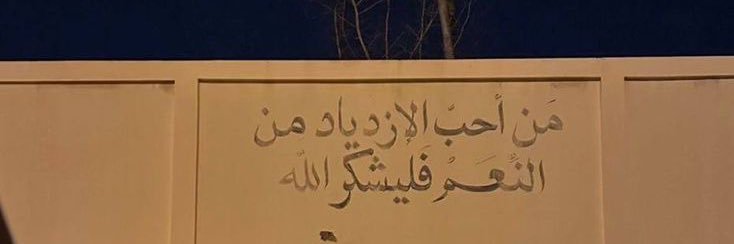 مَن أحبّ الإزدياد من
النِّعَمْ فَليشكر الله